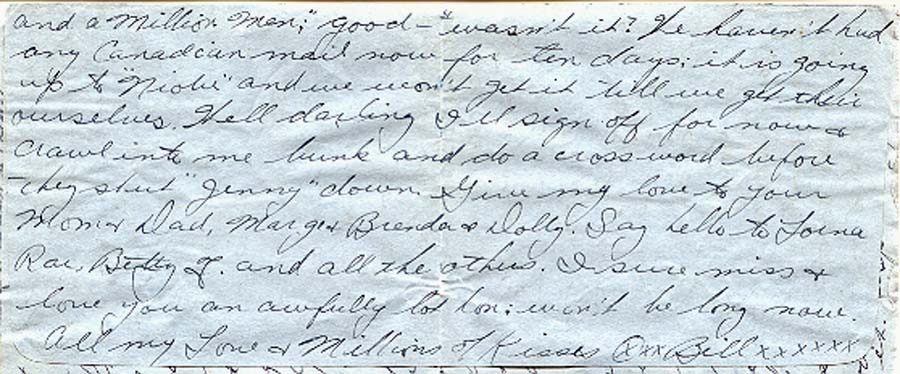 and a Million Men," good - wasn't it? We haven't had
any Canadian mail now for ten days; it is going
up to "Niobi" and we won't get it 'till we get their
ourselves. Well darling I'll sign off for now &
crawl into me bunk and do a crossword before
they shut "Jenny" down. Give my love to your
Mom & Dad, Marge & Brenda & Dolly. Say hello to Lorna
Rae, Betty J. and all the others. I sure miss &
love you an awfully lot hon; won't be long now.
All my Love & Millions of Kisses xxx Bill xxxxxxx